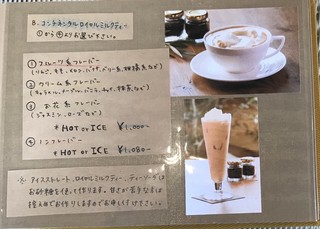 B. コンチネンタルロイヤルミルクティー
①から④よりお選び下さい。
① フルーツ系フレーバー
(りんご、もも、メロン、バナナ、
② クリーム系フレーバー
(キャラメル、メープル、バニラ、
③ お花系フレーバー
(ジャスミン、ローズなど)
* HOT or ICE ¥1,000-
④ ノンフレーバー
* HOT or ICE ¥1,080-
※ アイスストレート、ロイヤルミルクティー、ティーソーダは
お砂糖を使って作ります。甘さが苦手な方は
控えめでお作りしますのでお申しつけ下さい。